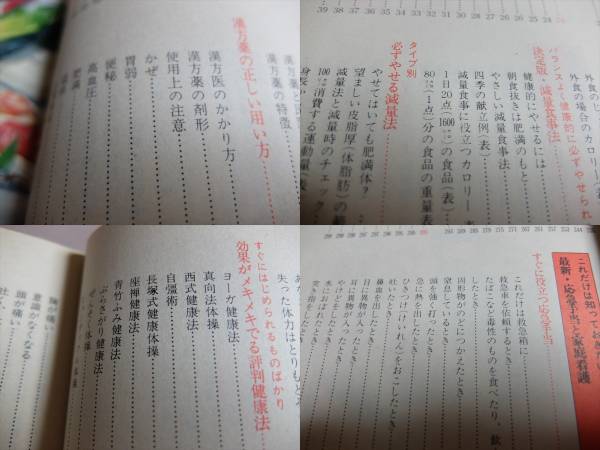 漢方薬の特徴
漢方薬の正しい用い方
漢方医のかかり方
漢方薬の剤形
使用上の注意
かぜ
胃弱
便秘
高血圧
肥満
39 38 37 36 35 34 33 32 31 30 29 28
外食の場合のカロリー
バランスよく健康的に必ずやせられ
決定版・減量食事法
健康的にやせるには
朝食抜きは肥満のもと
やさしい減量食事法
四季の献立例(表)
減量食事に役立つカロリー
1日20点1600の食品(表)
80(1点)分の食品の重量表
タイプ別
必ずやせる減量法
やせてはいても肥満体?
望ましい皮脂厚(体脂肪)の
減量法と減量時のチェック
100消費する運動量
失った体力はとりもど
すぐにはじめられるものばかり
効果がメキメキでる評判健康法
ヨーガ健康法
真向法体操
西式健康法
自彊術
長塚式健康体操
座禅健康法
青竹ふみ健康法
ぶらさがり健康法
胸が痛い
意識がなくなる
頭が痛い
吐く
これだけは知っておきたい
最新・応急手当と家庭看護
すぐに役立つ応急手当
これだけは救急箱に
救急車を依頼するとき
たばこなど毒性のものを食べたり、飲
したとき
固形物がのどにつかえたとき
窒息しているとき
頭を強く打ったとき
急に熱を出したとき
ひきつけ(けいれん)をおこしたとき
吐いたとき
鼻血を出したとき
耳に異物が入ったとき
目に異物が入ったとき
やけどをしたとき
指をはさんだとき
突き指をしたとき